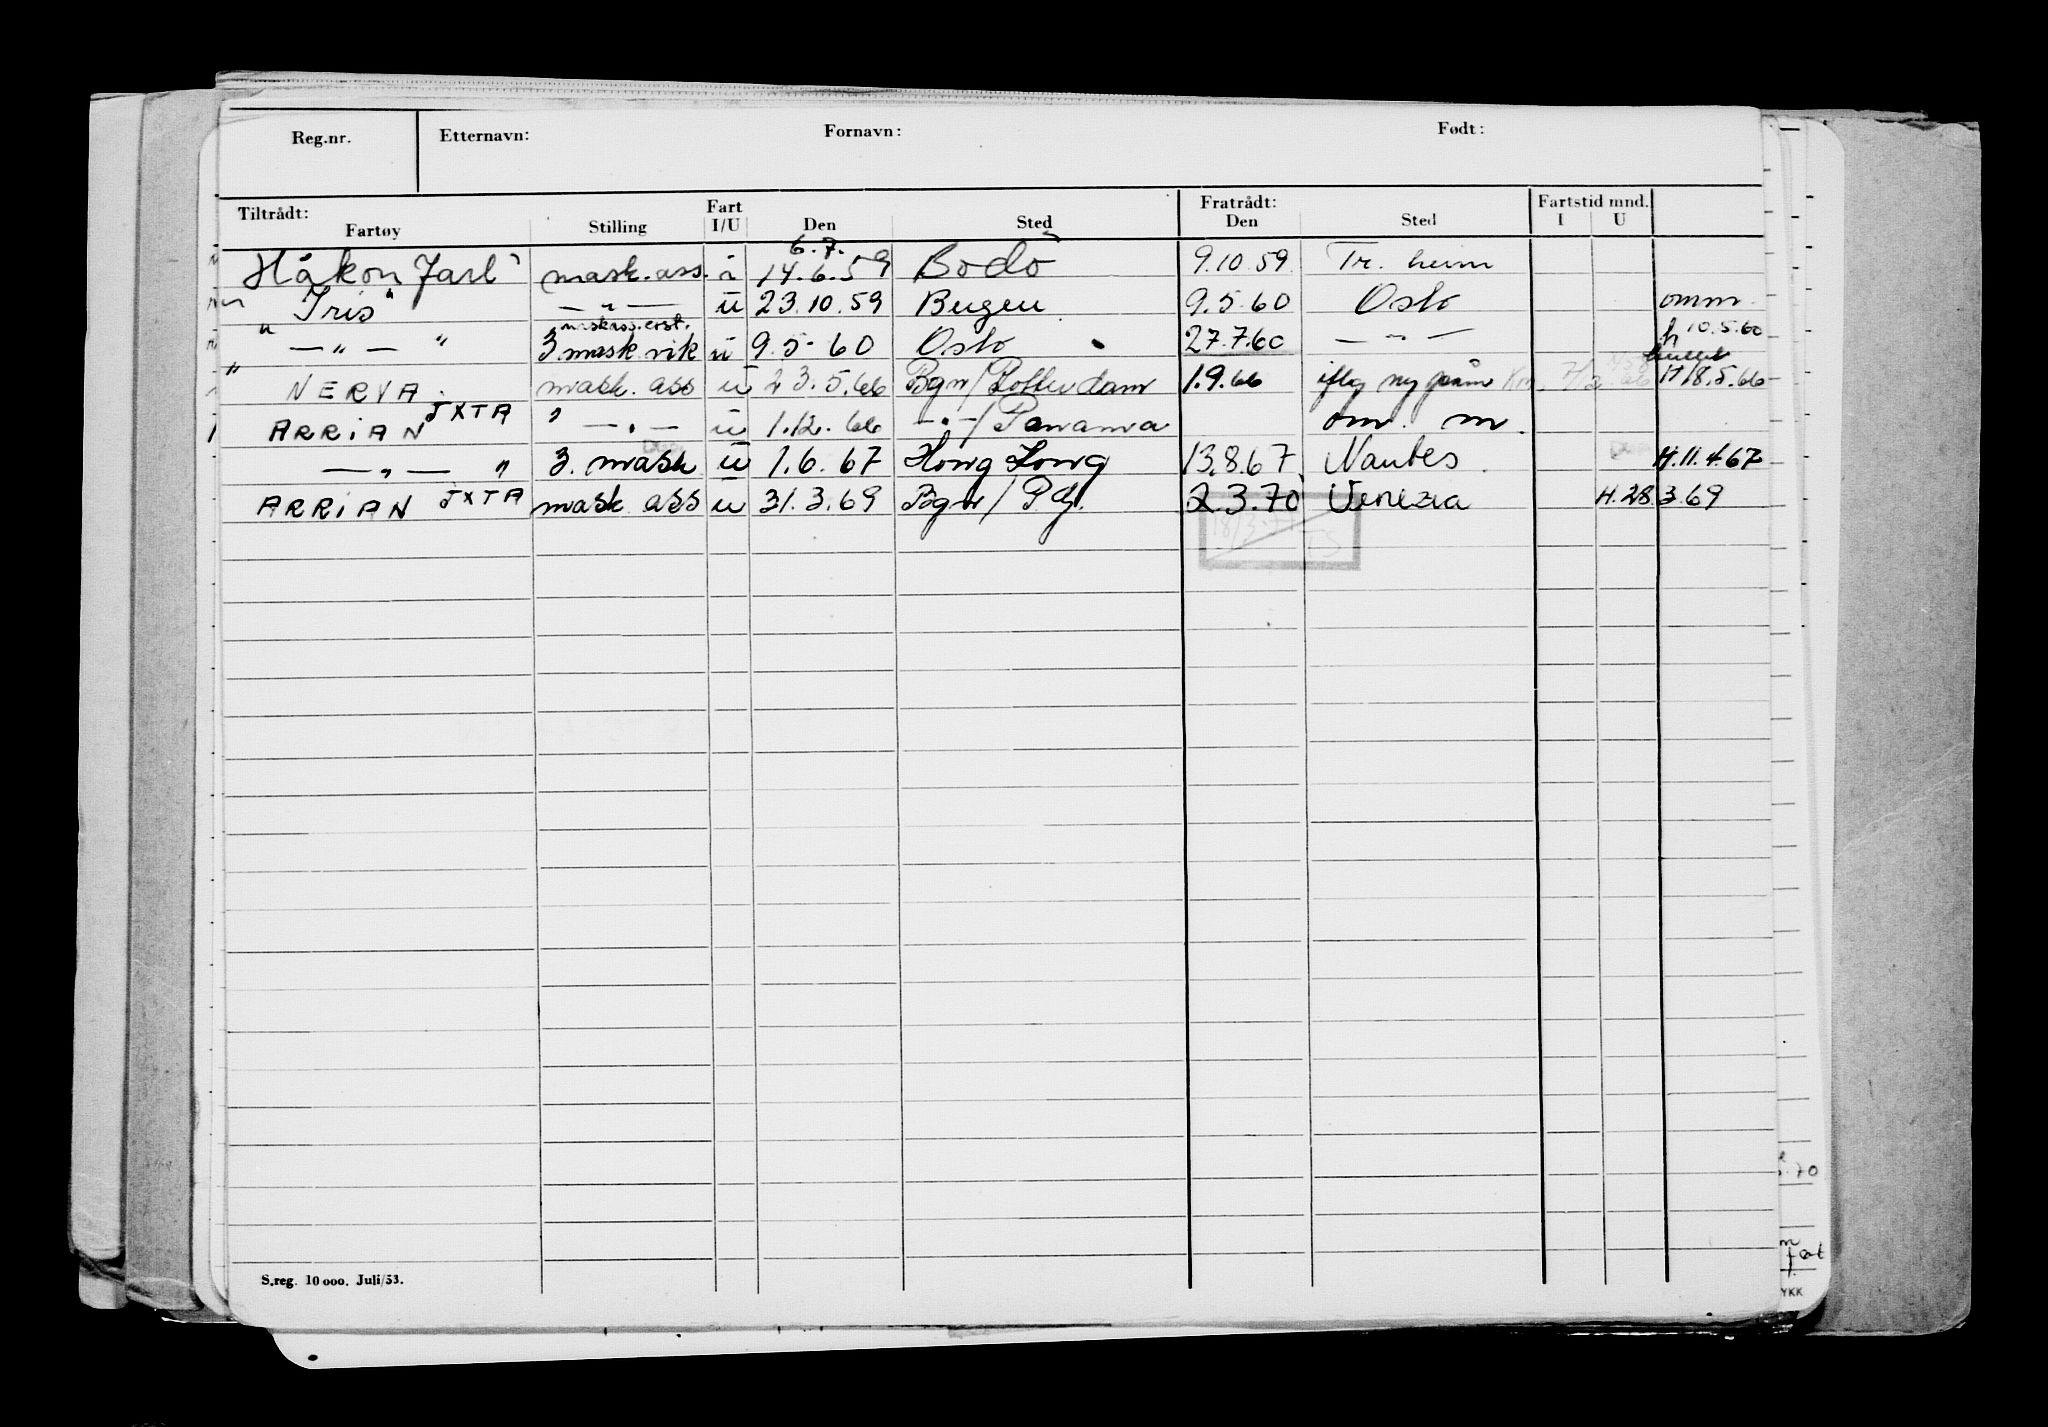 Reg.nr. Etternavn: Fornavn: Født:
Tiltrådt: Fart Fratrådt: Fartstid mnd.
Fartøy Stilling I/U Den Sted Den Sted I U
6.7.
Håkon Jarl" mask. ass. i 14.6.59 Bodö 9.10.59 Tr. heim
" Iris" — " — u 23.10.59 Bergen 9.5.60 Oslo omm.
" — " — " 3. mask vik u 9.5-60 Oslo 27.7.60 — " — h 10.5.60
" NERVA mask. ass u 23.5.66 Bgn/Rotterdam 1.9.66 iflg ny H 18.5.66
ARRIAN JXTA " — " — u 1.12.66 — " —/Panama om. m.
— " — " 3. mask u 1.6.67 Hong Kong 13.8.67 Nantes H.11.4.67
ARRIAN JXTA mask ass u 31.3.69 Bgn/ 2.3.70 Venezia H.28.3.69
S.reg. 10 000. Juli/53.